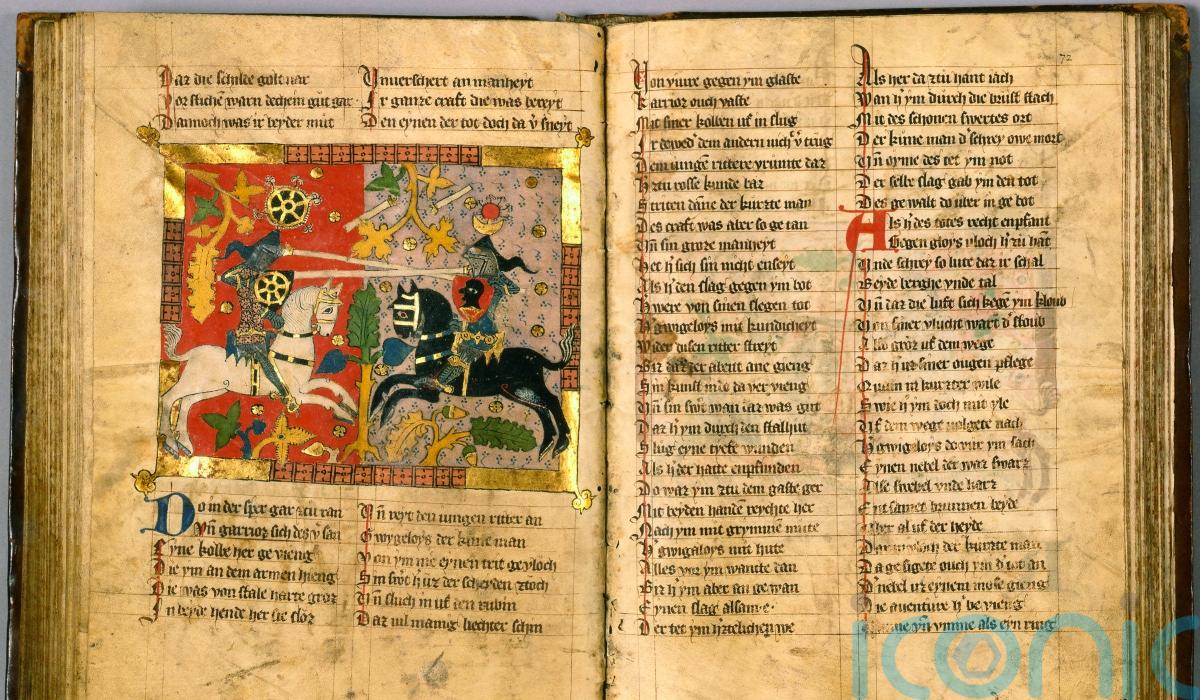 Daz die schilde golt var
Vor stichē warn dechein gůt gar
Dannoch was ir beyder mut
Vnuerschert an manheyt
Ir ganze craft die was bereyt
Den eynen der tot doch da v̄sneyt
Do in der sper gar zcu ran
Vn̄ garrioz sich des v̄san
Eyne kolbe her ge vieng
Die ym an dem armen hieng
Die was von stale harte groz
In beyde hende her sie sloz
Vn̄ reyt den iungen ritter an
Gwygeloys der kune man
Von ym nie eynen trit ge vloch
Sin swͦt h̓ uz der scheyden ztoch
Vn̄ sluch in uf den rubin
Daz uil manig liechter schin
Von vure gegen ym glaste
Karrioz ouch vaste
Mit siner kolben uf in slug
Ir dewed̓ dem andern nich v̓trug
Dem iungē rittere vrumte daz
H̓ ztu rosse kunde baz
Striten dāne der kurzte man
Des craft was aber so ge tan
Vn̄ sin groze manheyt
Het h̓ sich sin nicht enseyt
Als h̓ den slag gegen ym bot
H̓ were von sinen slegen tot
H̓ gwigeloys mit kundicheyt
Wider disen ritter streyt
Biz daz ez abent ane gieng
Sin kunst in da ver vieng
Vn̄ sin swͦt wan iz was gut
Daz h̓ ym durch den stalhut
Slug eyne tyefe wunden
Als h̓ der hatte enpfunden
Do waz ym ztu dem gaste ger
Mit beyden hande reychte her
Nach ym mit grymmē mute
H̓ gwigaloys mit hute
Alles vor ym wancte dan
Biz h̓ ym aber an ge wan
Eynen slag alsam e
Der tet ym h̓ztelichen we
Als her da ztu hant iach
Wan h̓ ym durch die brust stach
Mit des schonen swertes ort
Der kune man d̓ schrey owe mort
Vn̄ oyme des tet ym not
Der selbe slag gab ym den tot
Des ge walt do uber in ge bot
Als h̓ des totes recht enpfant
Gegen gloys vloch h̓ zu hāt
Vnde schrey so lute daz ir schal
Beyde berghe vnde tal
Vn̄ daz die luft sich kegē ym kloub
Von siner vlucht wart d̓ stoub
Also groz uf dem wege
Daz h̓ uz siner ougen pflege
Quam in kurzter wile
Swie h̓ ym doch mit yle
Vf dem wege volgete nach
H̓ gwigeloys do vor ym sach
Eynen nebel der waz swarz
Alse swebel vnde harz
Ent samet brunnen beyde
Vber al uf der heyde
Dar in vloch der kurzte man
Da ge sigete ouch ym d̓ tot an
D̓ nebel uz eynem mose gieng
Die auenture h̓ be vieng
vmme als eyn ring
72
iconic